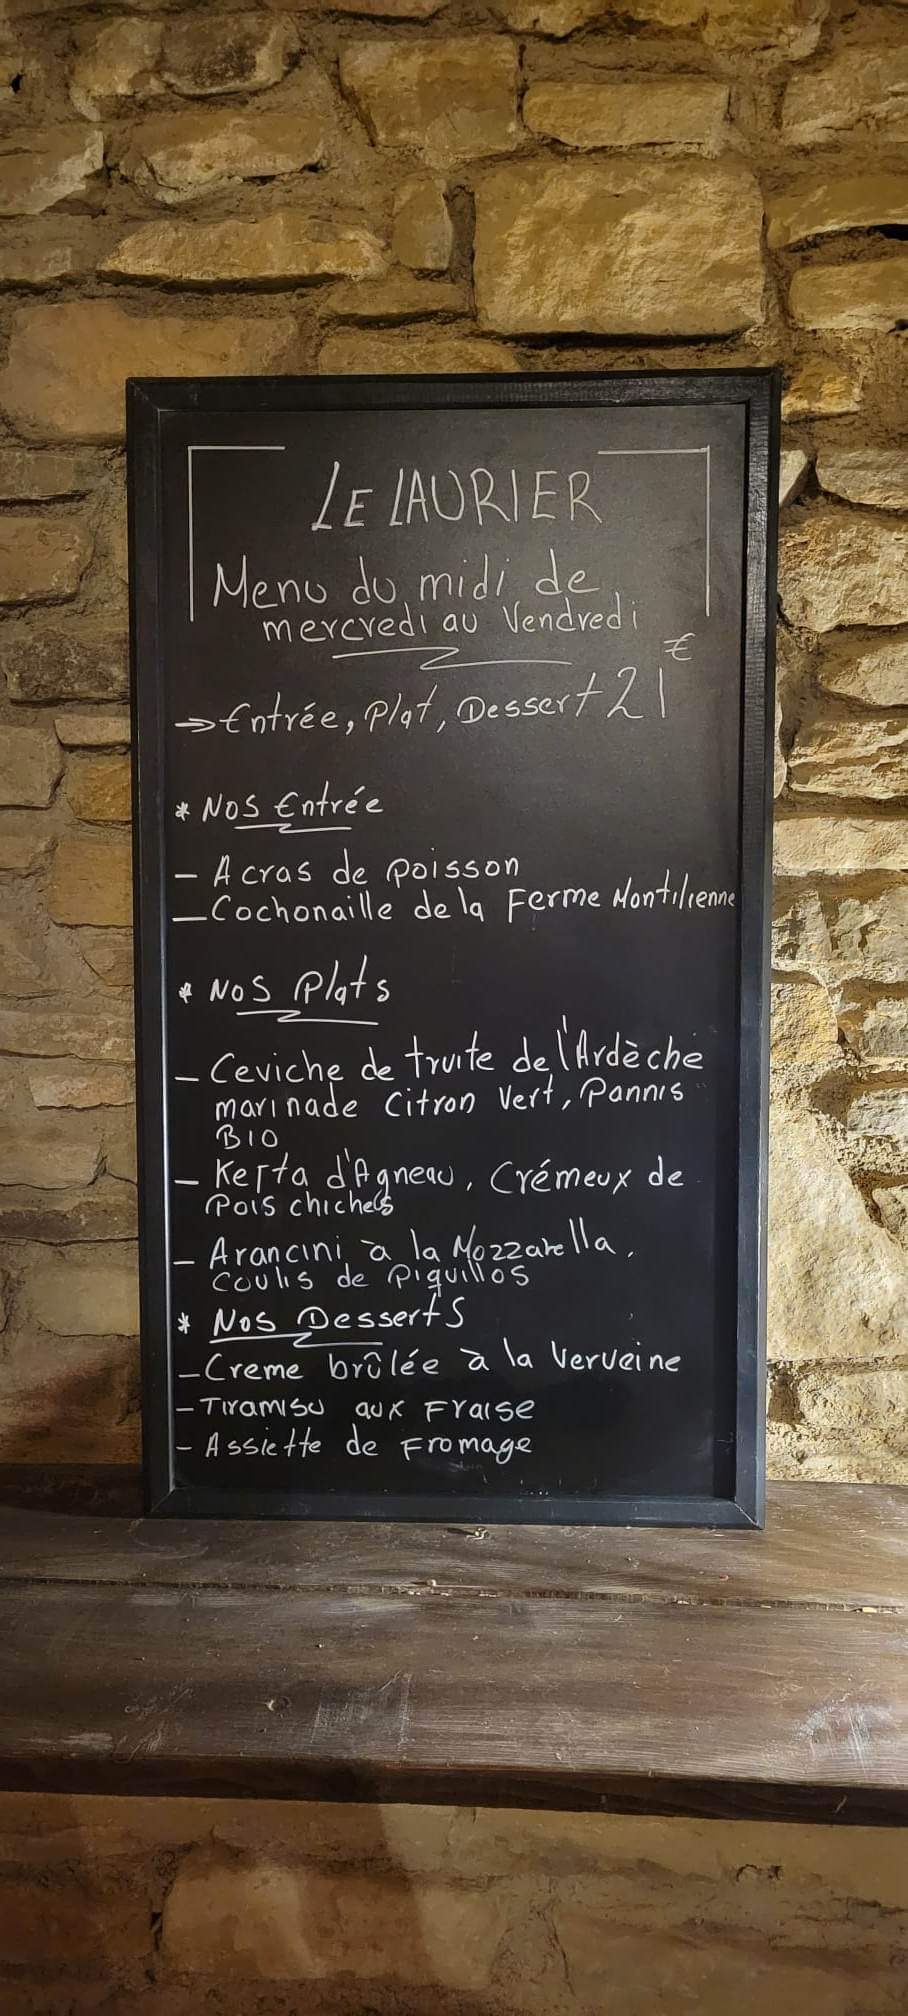 LE LAURIER
Menu du midi de
mercredi au Vendredi
€
→ Entrée, Plat, Dessert 21
* Nos Entrée
- Acras de Poisson
- Cochonaille de la Ferme Montilienne
* Nos Plats
- Ceviche de truite de l'Ardèche
marinade Citron Vert, Pannis
BIO
- Kefta d'Agneau, Crémeux de
Pois chiches
- Arancini à la Mozzarella,
Coulis de Piquillos
* Nos Desserts
- Creme brûlée à la Verveine
- Tiramisu aux Fraise
- Assiette de Fromage